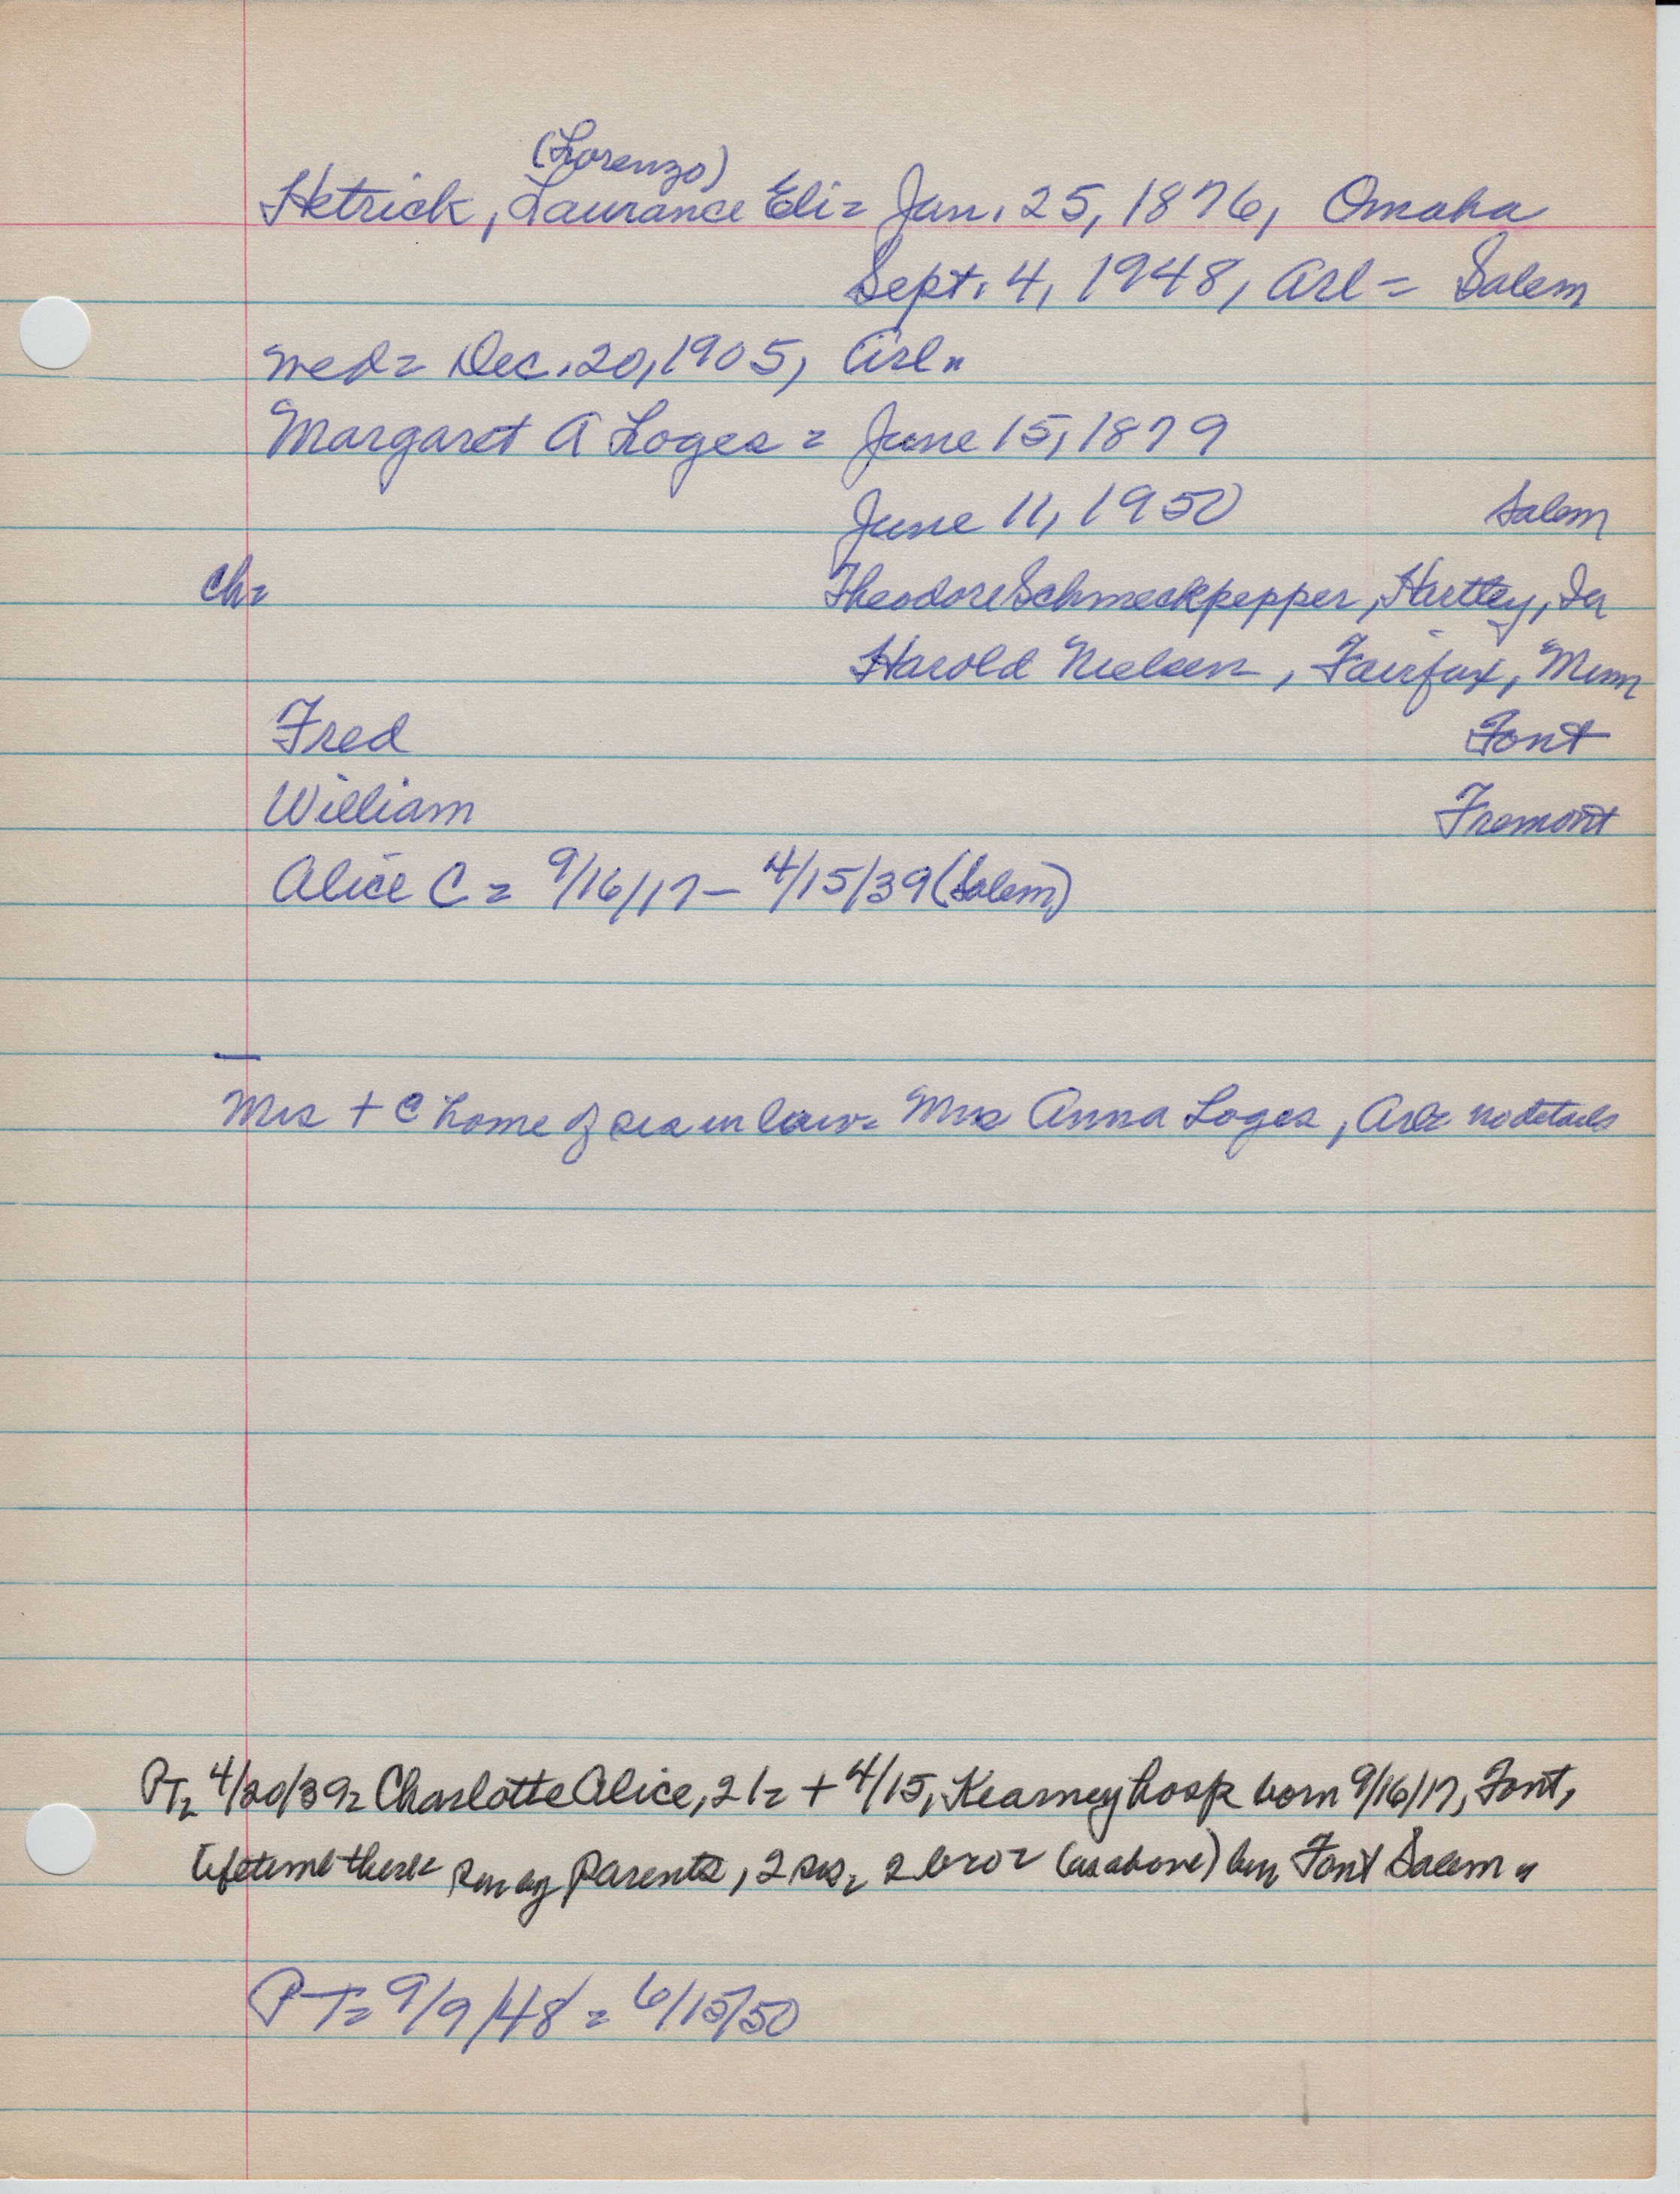 (Lorenzo)
Hetrick, Laurance Eli = Jan. 25, 1876, Omaha
Sept. 4, 1948, Arl = Salem
wed = Dec. 20, 1905, Arl =
Margaret A Loges = June 15, 1879
June 11, 1950 Salem
ch =
Theodore Schmeckpepper, Hartley, Ia
Harold Nielsen, Fairfax, Minn
Fred Font
William Fremont
Alice C = 9/16/17 - 4/15/39 (Salem)
Mrs + @ home of sis in law = Mrs Anna Loges, Arl = no details
PT = 4/20/39 = Charlotte Alice, 21 = + 4/15, Kearney hosp born 9/16/17, Font,
lifetime there = parents, 2 sis, 2 bro = (as above) bur Font Salem =
PT = 9/9/48 = 6/15/50